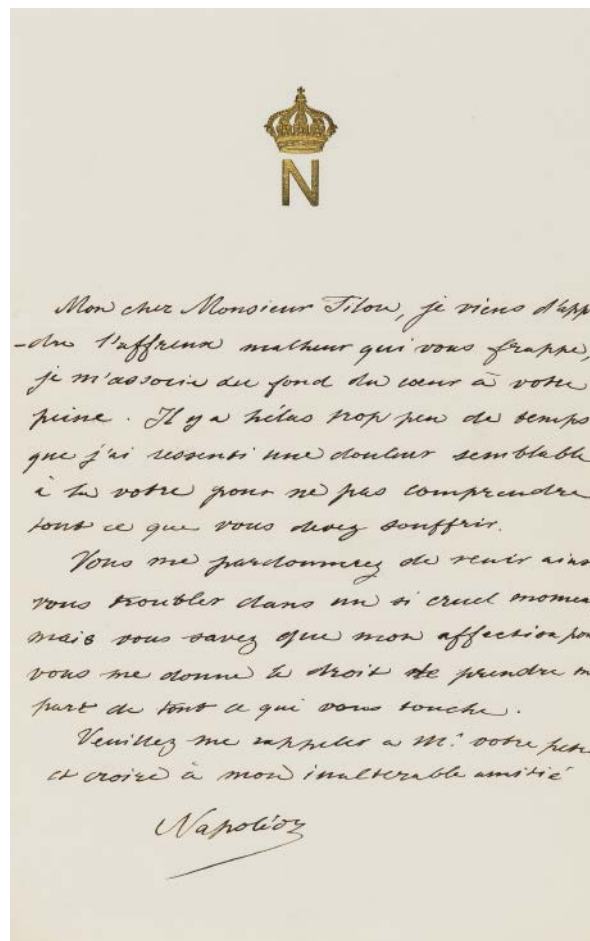 N
Mon cher Monsieur Filon, je viens d'app
-dre l'affreux malheur qui vous frappe,
je m'associe du fond du cœur à votre
peine. Il y a hélas trop peu de temps
que j'ai ressenti une douleur semblable
à la votre pour ne pas comprendre
tout ce que vous devez souffrir.
Vous me pardonnerez de venir ains
vous troubler dans un si cruel momen
mais vous savez que mon affection pou
vous me donne le droit de prendre m
part de tout ce qui vous touche.
Veuillez me rappeler a Mr. votre père
et croire à mon inaltérable amitié
Napoléon